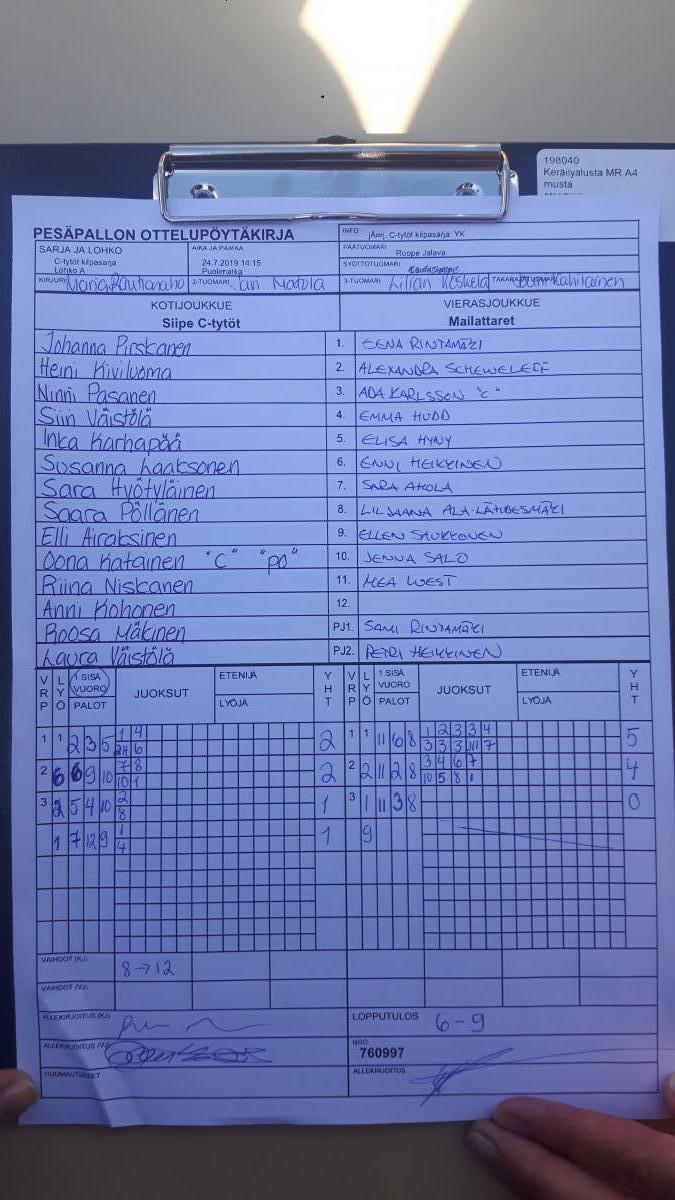 198040
Keräilyalusta MR A4
musta
PESÄPALLON OTTELUPÖYTÄKIRJA
INFO jAorj. C-tytöt kilpasarja: YK
SARJA JA LOHKO
C-tytöt kilpasarja
Lohko A
AIKA JA PAIKKA
24.7.2019 14:15
Puolimatka
PÄÄTUOMARI
Roope Jalava
SYÖTTÖTUOMARI
KIRJURI Maria Rautanaho 2-TUOMARI 3-TUOMARI Lilian Keskelä
KOTIJOUKKUE VIERASJOUKKUE
Siipe C-tytöt Mailattaret
Johanna Pirskanen 1. EENA RINTAMÄKI
Heini Kiviluoma 2. ALEXANDRA SCHEWELEFF
Ninni Pasanen 3. ADA KARLSSON "C"
Siiri Väistölä 4. EMMA HUDD
Inka Karhapää 5. ELISA HYNY
Susanna Laaksonen 6. ENNI HEIKKINEN
Sara Hyötyläinen 7. SARA AHOLA
Saara Pöllänen 8. LILJAANA ALA-LÄHDESMÄKI
Elli Airaksinen 9. ELLEN SAUKKONEN
Oona Katainen "C" "PO" 10. JENNA SALO
Riina Niskanen 11. MEA WEST
Anni Kohonen 12.
Roosa Mäkinen PJ1. SAMI RINTAMÄKI
Laura Väistölä PJ2. PETRI HEIKKINEN
VRP LYÖ 1.SISÄ VUORO PALOT JUOKSUT ETENIJÄ LYÖJÄ YHT VRP LYÖ 1.SISÄ VUORO PALOT JUOKSUT ETENIJÄ LYÖJÄ YHT
1 1 2 3 5 1 4 2 1 1 11 6 8 1 2 3 3 4 5
6 3 3 3 7
2 6 6 9 10 7 8 2 2 2 11 2 8 3 4 6 7 4
10 1 10 5 8 1
3 2 5 4 10 2 1 3 1 11 3 8 0
8
1 7 12 9 1 1 9
4
VAIHDOT (KJ) 8→12
VAIHDOT (VJ)
ALLEKIRJOITUS (KJ) LOPPUTULOS 6-9
ALLEKIRJOITUS (VJ) NRO
760997
HUOMAUTUKSET ALLEKIRJOITUS